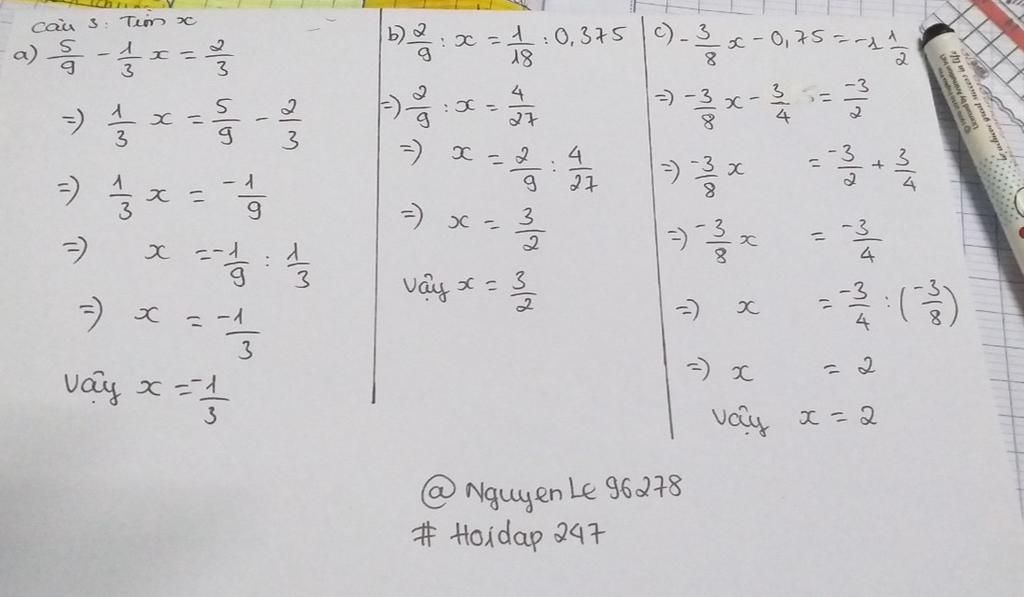 Câu 3: Tìm x
a) 5/9 - 1/3 x = 2/3
=) 1/3 x = 5/9 - 2/3
=) 1/3 x = -1/9
=) x = -1/9 : 1/3
=) x = -1/3
Vậy x = -1/3
b) 2/9 : x = 1/18 : 0,375
=) 2/9 : x = 4/27
=) x = 2/9 : 4/27
=) x = 3/2
Vậy x = 3/2
c) -3/8 x - 0,75 = -1 1/2
=) -3/8 x - 3/4 = -3/2
=) -3/8 x = -3/2 + 3/4
=) -3/8 x = -3/4
=) x = -3/4 : (-3/8)
=) x = 2
Vậy x = 2
@NguyenLe96278
# Hoidap247